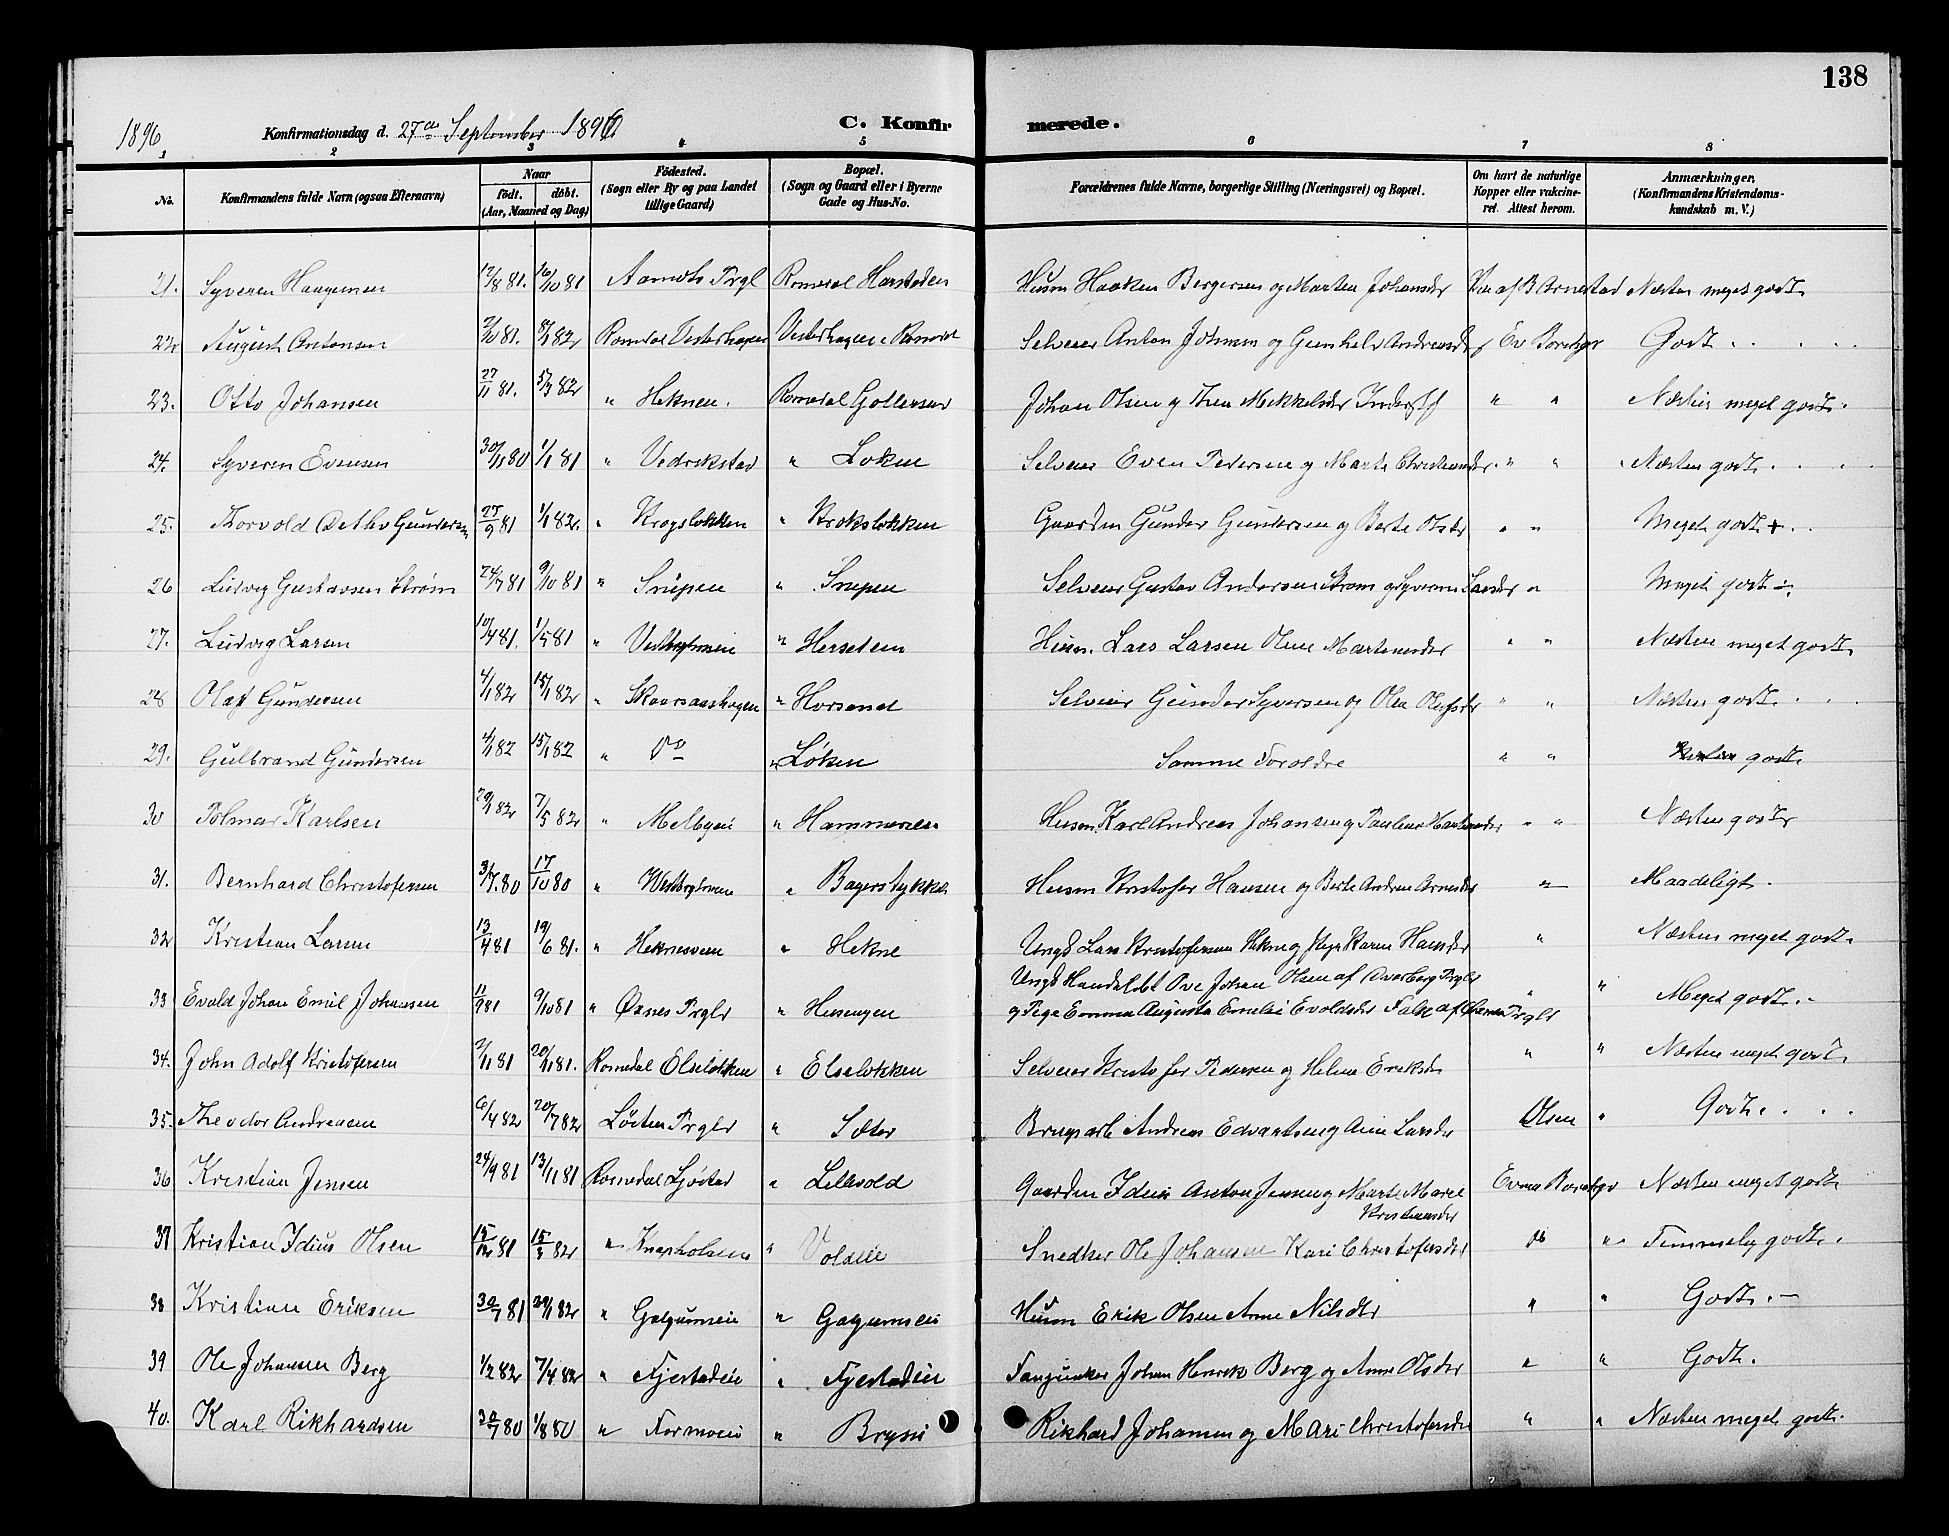 138
1896 Konfirmationsdag d. 27de September 1896 C. Konfirmerede.
1 2 3 4 5 6 7 8
No. Konfirmandens fulde Navn (ogsaa Efternavn) Naar født. døbt. (Aar, Maaned og Dag) Fødested. (Sogn eller By og paa Landet tillige Gaard) Bopæl. (Sogn og Gaard eller i Byerne Gade og Hus-No. Forældrenes fulde Navne, borgerlige Stilling (Næringsvei) og Bopæl. Om havt de naturlige Kopper eller vakcineret. Attest herom. Anmærkninger. (Konfirmandens Kristendomskundskab m. V.)
21. Syveren Haagensen 12/8 81. 16/10 81 Aamots Prgl Romedal Harstaden Husm Haaken Bergersen og Marten Johansdr Næsten meget godt
22 August Antonsen 2/10 81. 8/1 82 Romedal Vesterhagen Vesterhagen Romedal Selveier Anton Johnsen og Gunhild Andreasdr Godt
23. Otto Johansen 27/11 81. 5/3 82 " Heknen. Romedal Gollersrud Johan Olsen og Thea Mikkelsdr " " Næsten meget godt.
24. Syveren Evensen 30/11 80 1/1 81 " Vedrekstad " Loken Selveier Even Pedersen og Marte Christiansdr. " " Næsten godt
25. Thorvold Detlev Gundersen 27/9 81 1/1 82. " Krogslokken " Krokslokken Gaardm Gunder Gundersen og Berte Olsdr " " Meget godt +
26 Ludvig Gustavsen Strøm 24/7 81 9/10 81 " Snipen " Snipen Selveier Gustav Andersen Strøm og Syverine Larsdr " Meget godt ÷
27. Ludvig Larsen 10/4 81. 1/5 81 " " Hersetem Husm. Lars Larsen Oline Martinusdr " " Næsten meget godt
28 Olaf Gundersen 4/1 82 15/1 82 " Skaarsaashagen " Horsend Selveier Gunder Syversen og Olea Olafsdr " " Næsten godt.
29. Gulbrand Gundersen 4/1 82 15/1 82 " Do " Løken Samme Foroldre " " godt
30 Tolmar Karlsen 29/1 82 7/5 82 " Melbyeie " Hammeren Husm Karl Andreas Johansen og Pauline Martinsdr " " Næsten godt
31. Bernhard Christofersen 3/7. 80 17/10 80 " " Bagerstykket Husm Kristofer Hansen og Berte Andrea Arnesdr " Maadeligt.
32 Kristian Larsen 13/4 81 19/6 81. " Heknesveen " Hekne Ungk Lars Kristofersen Hekne og Pige Karen Hansdr " Næsten meget godt.
33 Evald Johan Emil Johansen 11/9 81 9/10 81 " Øxnes Prgld " Husengen Ungk Handelsbt Ove Johan Olsen af Overberg Prgld
og Pige Emma Augusta Emelie Evoldsdr Falk af Prgld " " Meget godt.
34. John Adolf Kristofersen 2/11 81 20/11 81. Romedal Elselokken " Elselokken Selveier Kristofer Pedersen og Helene Eriksdr " " Næsten meget godt.
35. Theodor Andreasen 6/4 82 20/7 82 Løiten Prgld " Sæter Brugsarb Andreas Edvartsen og Anne Larsdr Olsen " Godt.
36 Kristian Jensen 24/9 81 13/11 81 Romedal Ljøstad " Lillevold Gaardm Ideus Anton Jensen og Marte Marie
Kristiansdr Næsten meget godt
37 Kristian Idius Olsen 15/12 81 15/3 82 " Knapholsene " Volseie Snedker Ole Johansen Kari Christofersdr do " Temmelig godt.
38 Kristian Eriksen 30/7 81 29/1 82 " Galgumeie " Gagumeie Husm Erik Olsen Anne Nilsdr " " Godt.
39 Ole Johansen Berg 1/2 82 7/4 82 " Fjestadeie " Fjestadeie Johan Henrik Berg og Anne Olsdr " " Godt.
40. Karl Rikhardsen 30/7 80 1/8 80 " Formoeie " Brysi Rikhard Johansen og Mari Christofersdr " " Næsten meget godt.